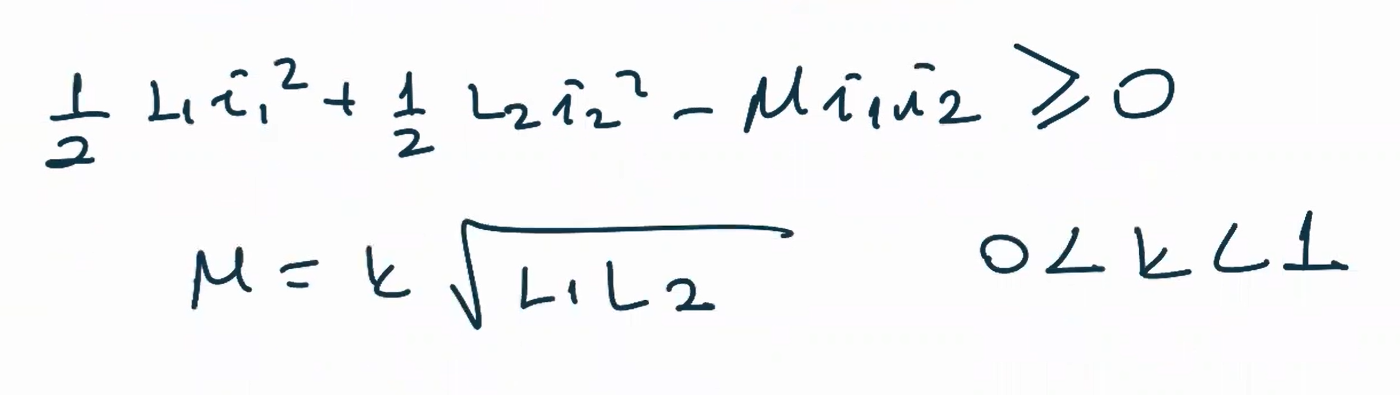 ½ L₁ i₁² + ½ L₂ i₂² − M i₁ i₂ ⩾ 0
M = k √(L₁ L₂)    0 < k < 1